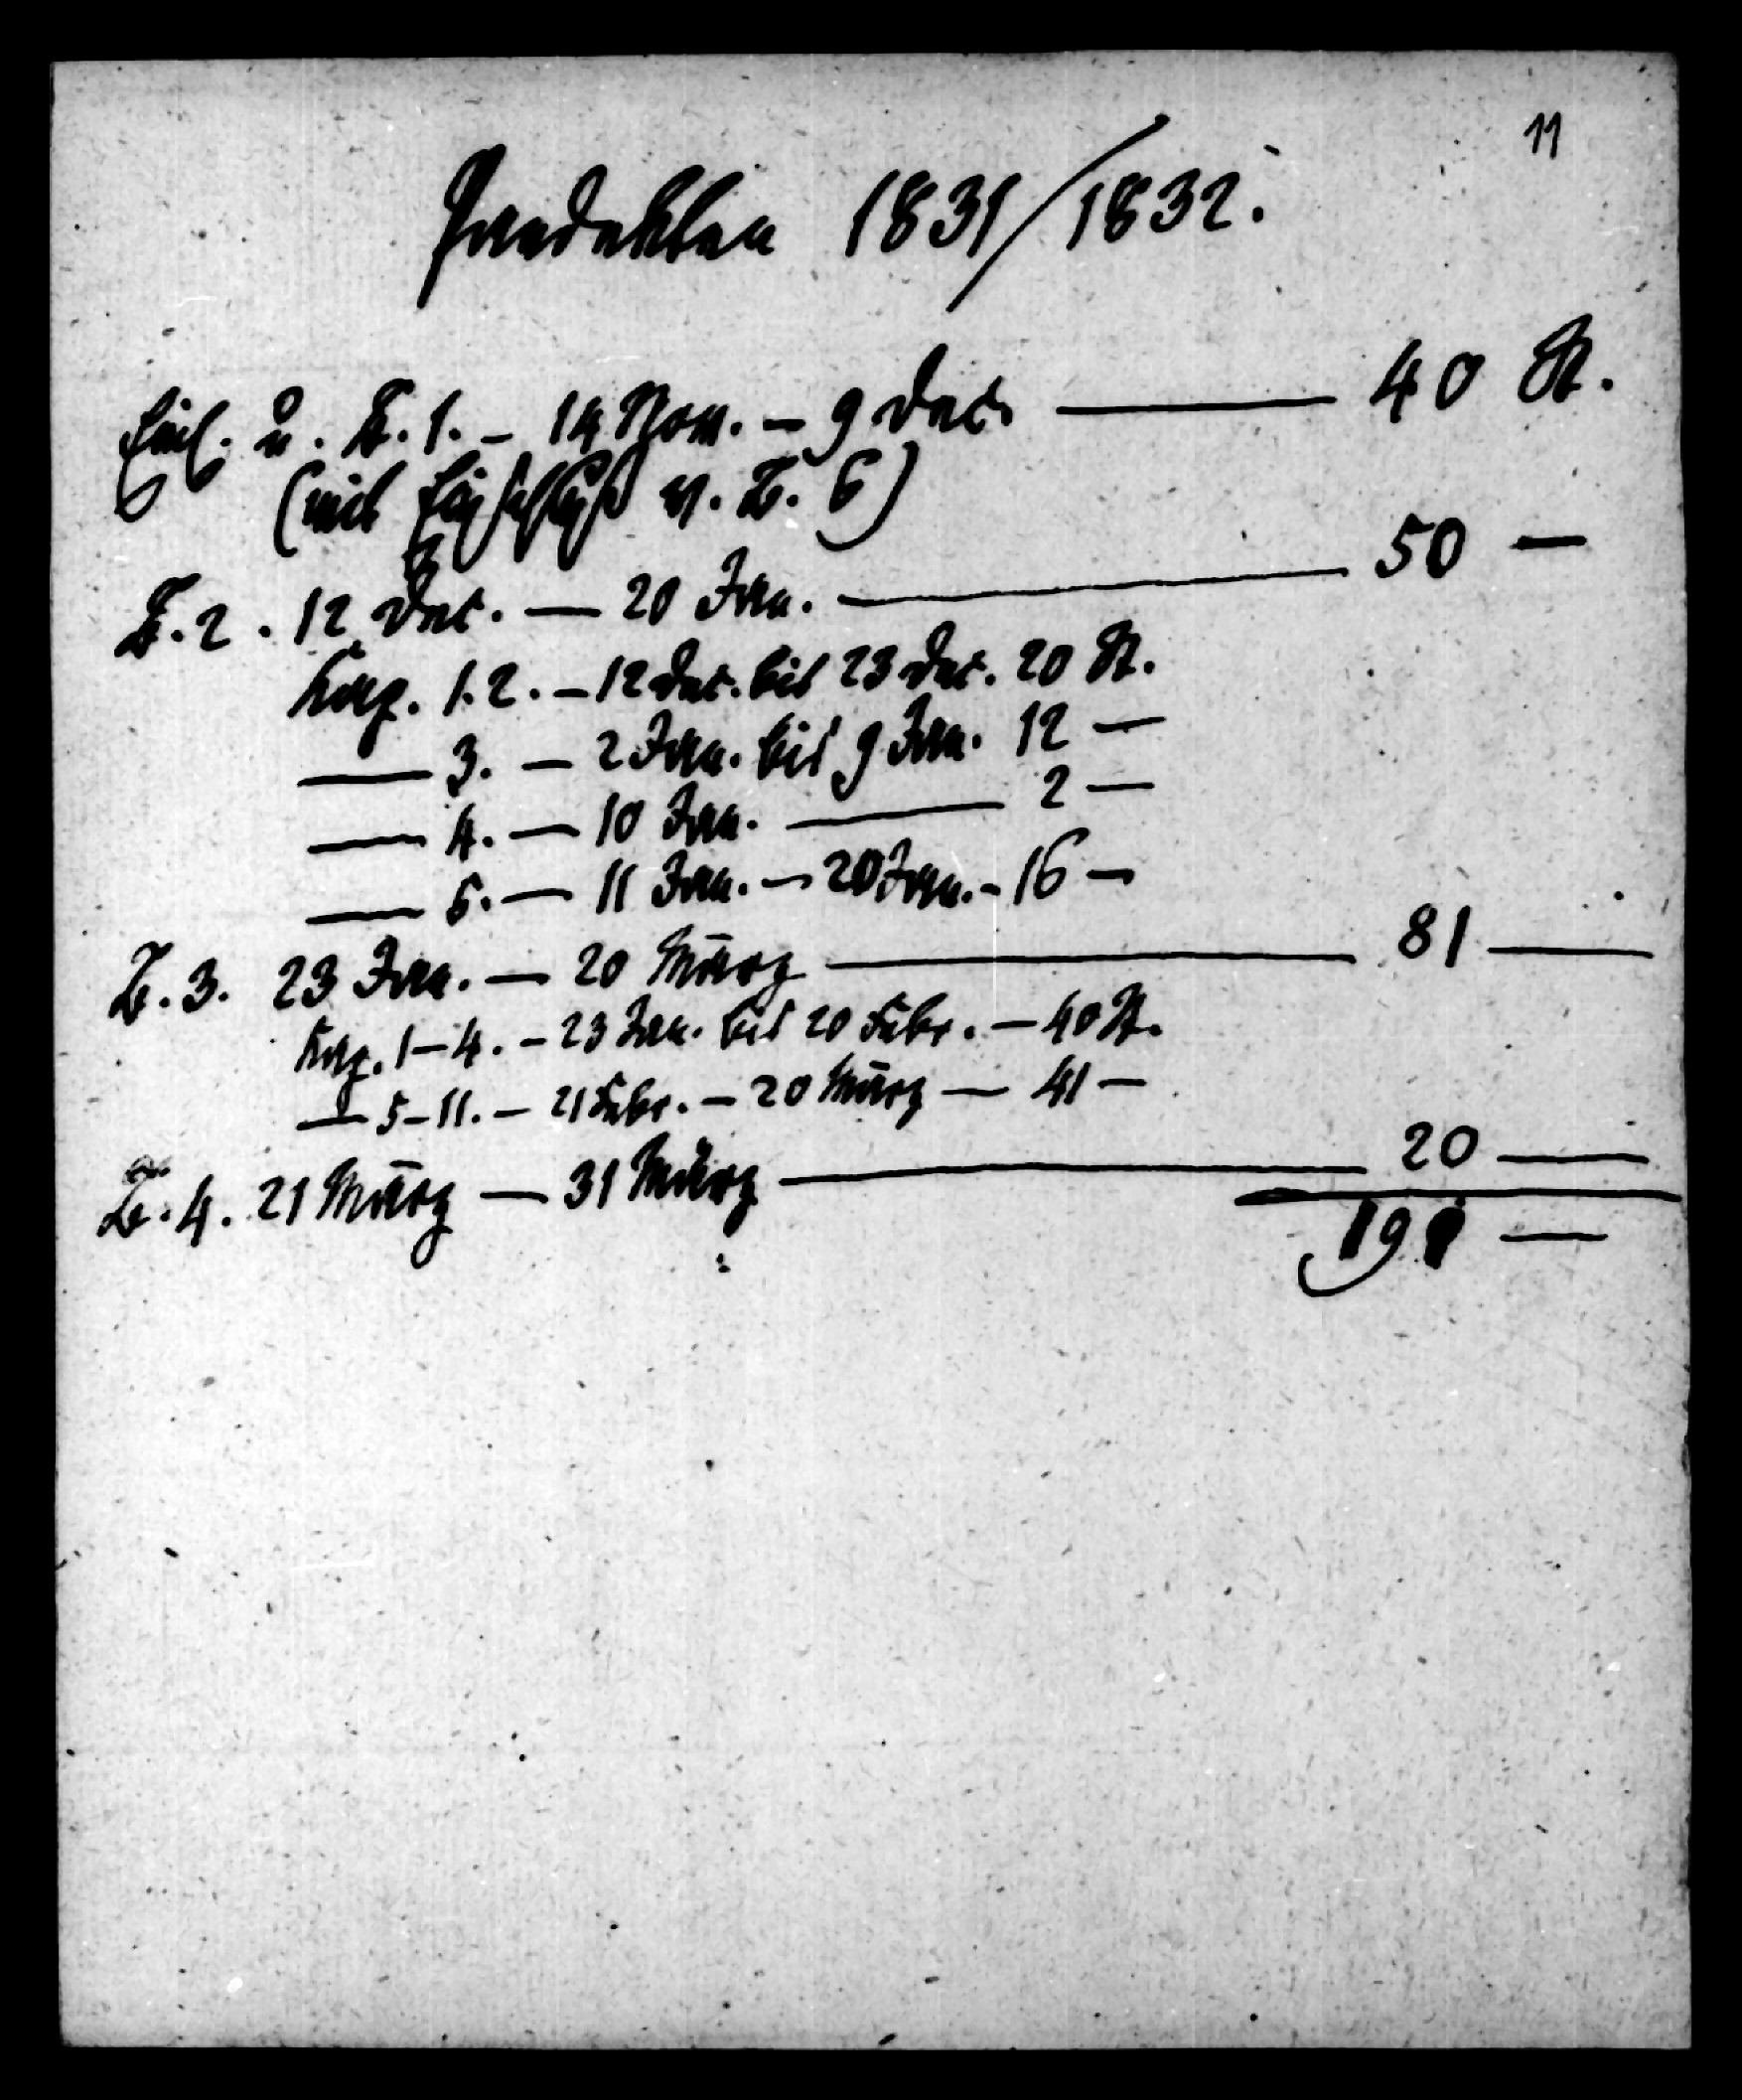 11
Pandekten 1831/1832.
Einl. u. B. 1. – 14 Nov. – 9 Dec. — 40 St.
(mit Einschluß v. B. 6)
B. 2. 12 Dec. — 20 Jan. — 50 —
Kap. 1. 2. – 12 Dec. bis 23 Dec. 20 St.
— 3. – 2 Jan. bis 9 Jan. 12 —
— 4. — 10 Jan. — 2 —
— 5. — 11 Jan. – 20 Jan. – 16 –
B. 3. 23 Jan. — 20 März — 81 —
Kap. 1–4. – 23 Jan. bis 20 Febr. – 40 St.
— 5–11. – 21 Febr. – 20 März — 41 –
B. 4. 21 März — 31 März — 20 —
191 —